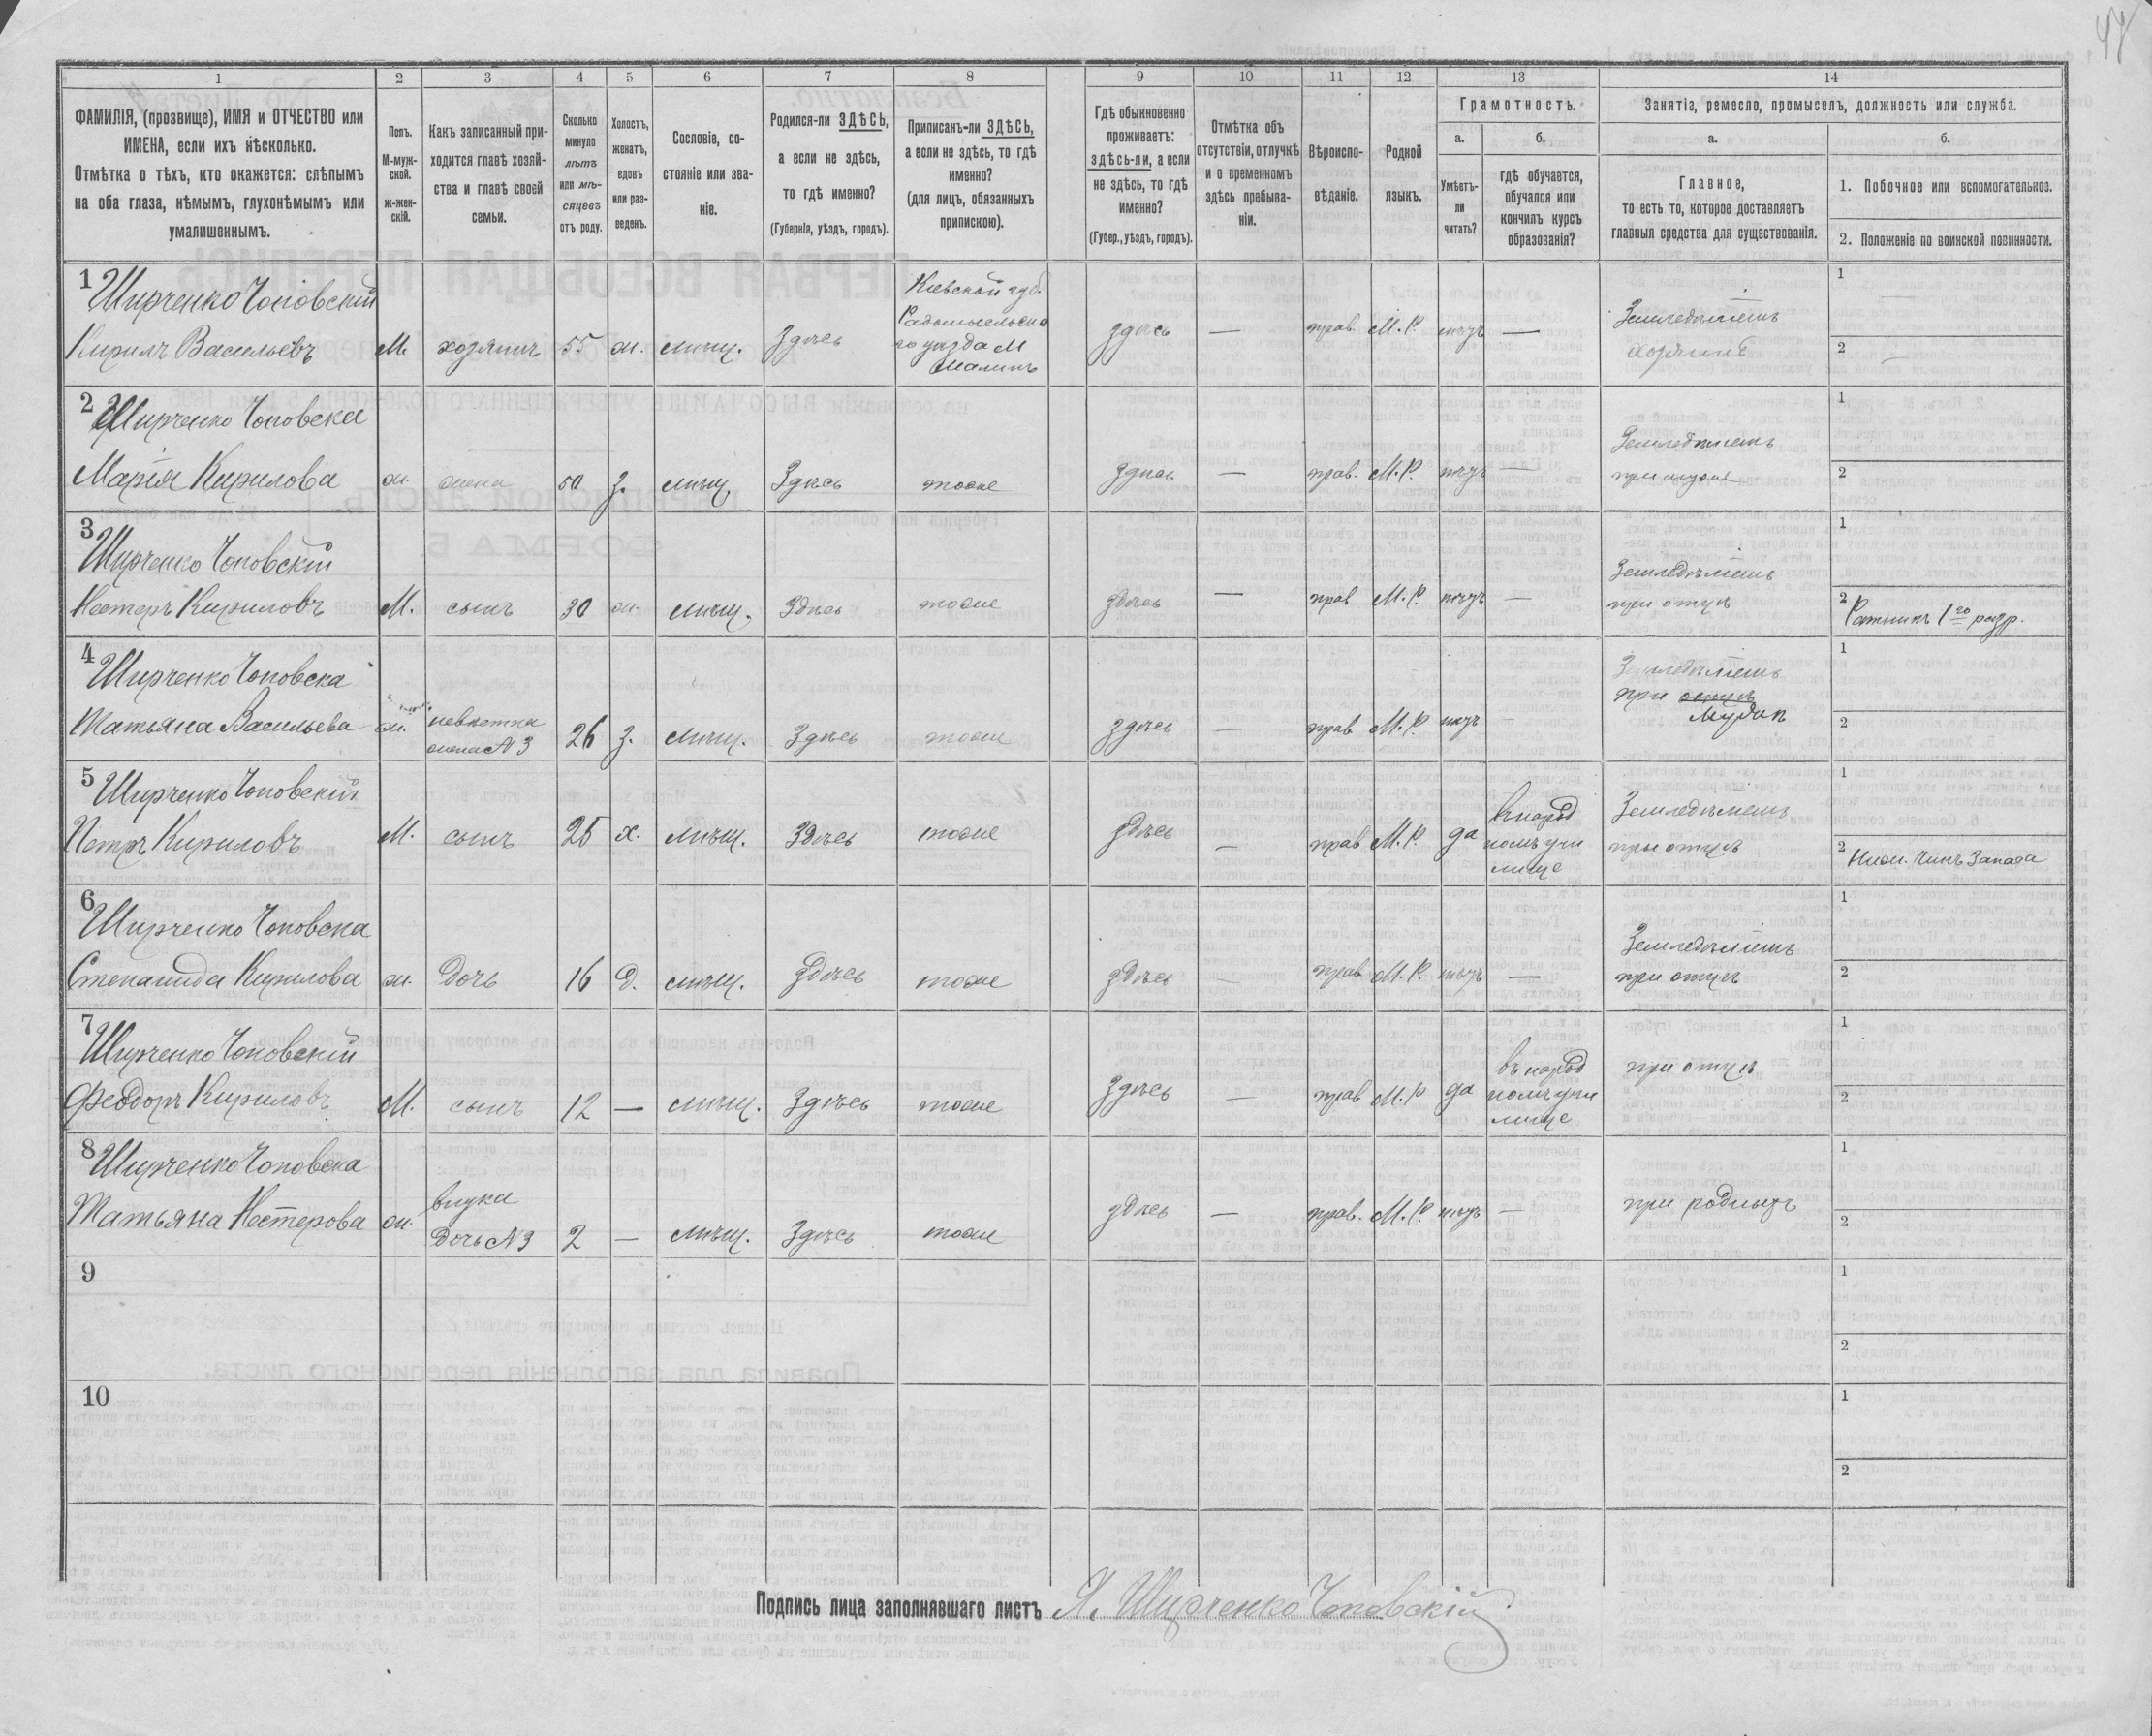 47
1 2 3 4 5 6 7 8 9 10 11 12 13 14
ФАМИЛІЯ, (прозвище), ИМЯ и ОТЧЕСТВО или
ИМЕНА, если ихъ нѣсколько.
Отмѣтка о тѣхъ, кто окажется: слѣпымъ
на оба глаза, нѣмымъ, глухонѣмымъ или
умалишеннымъ.
Полъ.
М-муж-
ской.
ж-жен-
скій.
Какъ записанный при-
ходится главѣ хозяй-
ства и главѣ своей
семьи.
Сколько
минуло
лѣтъ
или мѣ-
сяцевъ
отъ роду.
Холостъ,
женатъ,
вдовъ
или раз-
веденъ.
Сословіе, со-
стояніе или зва-
ніе.
Родился-ли ЗДѢСЬ,
а если не здѣсь,
то гдѣ именно?
(Губернія, уѣздъ, городъ).
Приписанъ-ли ЗДѢСЬ,
а если не здѣсь, то гдѣ
именно?
(для лицъ, обязанныхъ
припискою).
Гдѣ обыкновенно
проживаетъ:
здѣсь-ли, а если
не здѣсь, то гдѣ
именно?
(Губер., уѣздъ, городъ).
Отмѣтка объ
отсутствіи, отлучкѣ
и о временномъ
здѣсь пребыва-
ніи.
Вѣроиспо-
вѣданіе.
Родной
языкъ.
Грамотность.
а.
Умѣетъ-
ли
читать?
б.
гдѣ обучается,
обучался или
кончилъ курсъ
образованія?
Занятіа, ремесло, промыселъ, должность или служба.
а.
Главное,
то есть то, которое доставляетъ
главныя средства для существованія.
б.
1. Побочное или вспомогательное.
2. Положеніе по воинской повинности.
1
Ширченко Чоповскій
Кирилъ Васильевъ
М.
хозяинъ
55
ж.
мѣщ.
Здѣсь
Кіевской губ.
Радомысльска
го уѣзда М
Малинъ
здѣсь
—
прав.
М.Р.
нѣтъ
—
Земледѣлецъ
хозяинъ
1
2
2
Ширченко Чоповска
Марія Кирилова
ж.
жена
50
з.
мѣщ
Здѣсь
тоже
здѣсь
—
прав.
М.Р.
нѣтъ
—
при мужѣ
1
2
3
Ширченко Чоповскій
Нестеръ Кириловъ
М.
сынъ
30
ж.
мѣщ.
Здѣсь
тоже
здѣсь
—
прав
М.Р.
нѣтъ
—
при отцѣ
1
2
Ратникъ 1го разр.
4
Ширченко Чоповска
Татьяна Васильева
ж.
невѣстка
жена № 3
26
з.
мѣщ.
Здѣсь
тоже
здѣсь
—
прав
М.Р.
нѣтъ
—
при отцѣ
Мужѣ
1
2
5
Ширченко Чоповскій
Петръ Кириловъ
М.
сынъ
25
х.
мѣщ.
Здѣсь
тоже
здѣсь
—
прав
М.Р.
да
въ народ
номъ учи
лище
при отцѣ
1
2
Ниж. Чинъ Запаса
6
Ширченко Чоповска
Степанида Кирилова
ж.
Дочь
16
д.
мѣщ.
Здѣсь
тоже
здѣсь
—
прав
М.Р.
нѣтъ
—
при отцѣ
1
2
7
Ширченко Чоповскій
Феодоръ Кириловъ
М.
сынъ
12
—
мѣщ.
Здѣсь
тоже
Здѣсь
—
прав
М.Р
да
въ народ
номъ учи
лище
при отцѣ
1
2
8
Ширченко Чоповска
Татьяна Нестерова
ж.
внука
Дочь № 3
2
—
мѣщ.
Здѣсь
тоже
здѣсь
—
прав.
М.Р.
нѣтъ
—
при родныхъ
1
2
9
1
2
10
1
2
Подпись лица заполнявшаго листъ
Ширченко Чоповскій